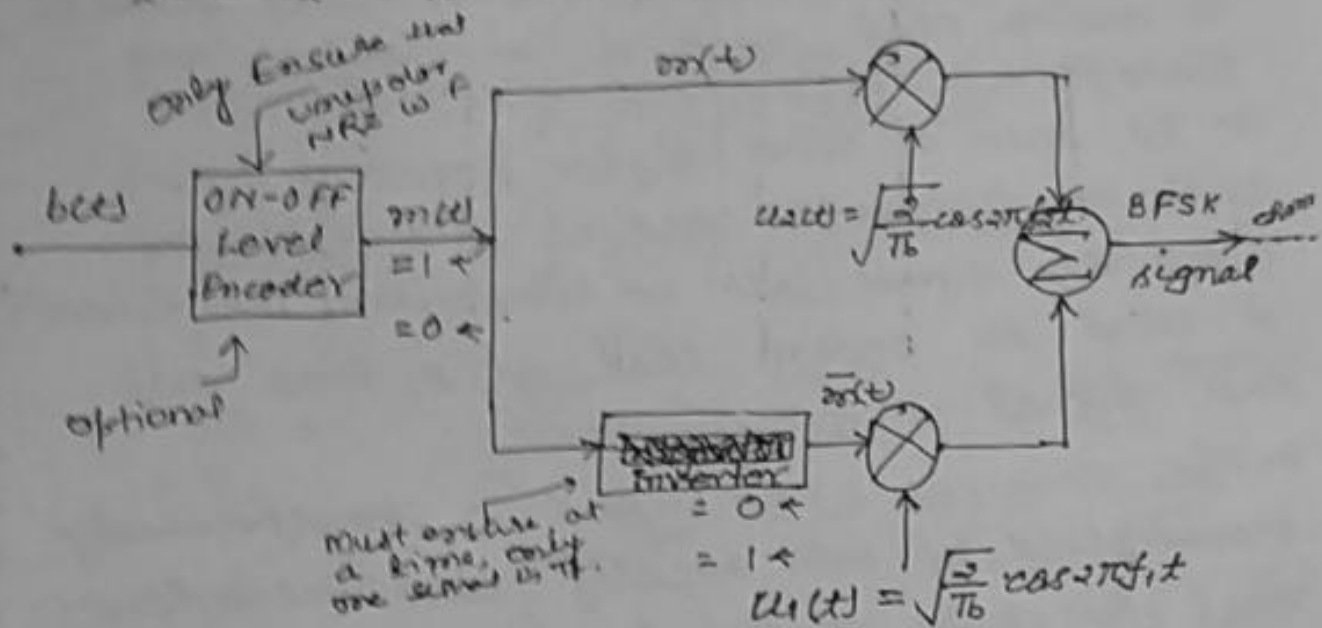 only Ensure that
unipolar
NRZ W F
bits
ON-OFF
Level
Encoder
m(t)
= 1 ←
= 0 ←
optional
m(t)
u2(t) = √(2/Tb) cos2πf2t
Σ
BFSK
signal
m̅(t)
Inverter
= 0 ←
= 1 ←
must ensure, at
a time, only
one
u1(t) = √(2/Tb) cos2πf1t